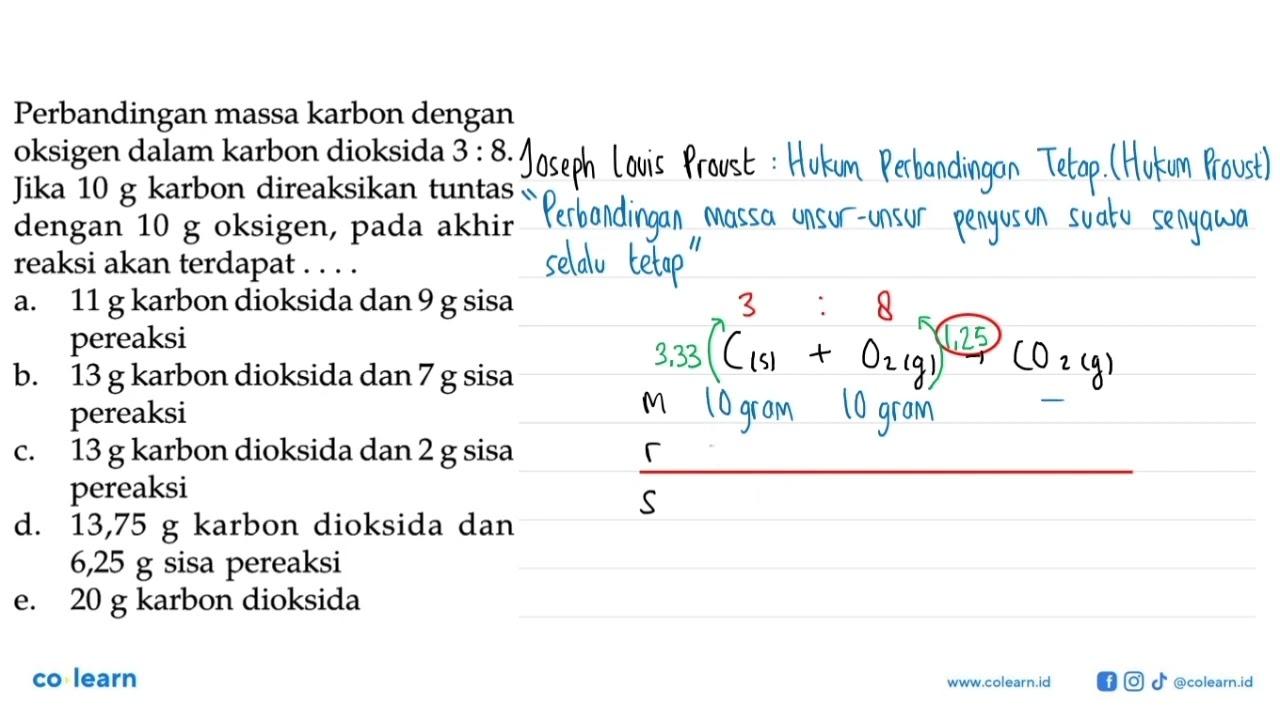 Perbandingan massa karbon dengan
oksigen dalam karbon dioksida 3 : 8.
Jika 10 g karbon direaksikan tuntas
dengan 10 g oksigen, pada akhir
reaksi akan terdapat . . . .
a. 11 g karbon dioksida dan 9 g sisa
pereaksi
b. 13 g karbon dioksida dan 7 g sisa
pereaksi
c. 13 g karbon dioksida dan 2 g sisa
pereaksi
d. 13,75 g karbon dioksida dan
6,25 g sisa pereaksi
e. 20 g karbon dioksida
Joseph Louis Proust : Hukum Perbandingan Tetap. (Hukum Proust)
"Perbandingan massa unsur-unsur penyusun suatu senyawa
selalu tetap"
3 : 8
3,33 C(s) + O2(g) 1,25 → CO2(g)
M 10 gram 10 gram —
r
S
co learn
www.colearn.id @colearn.id